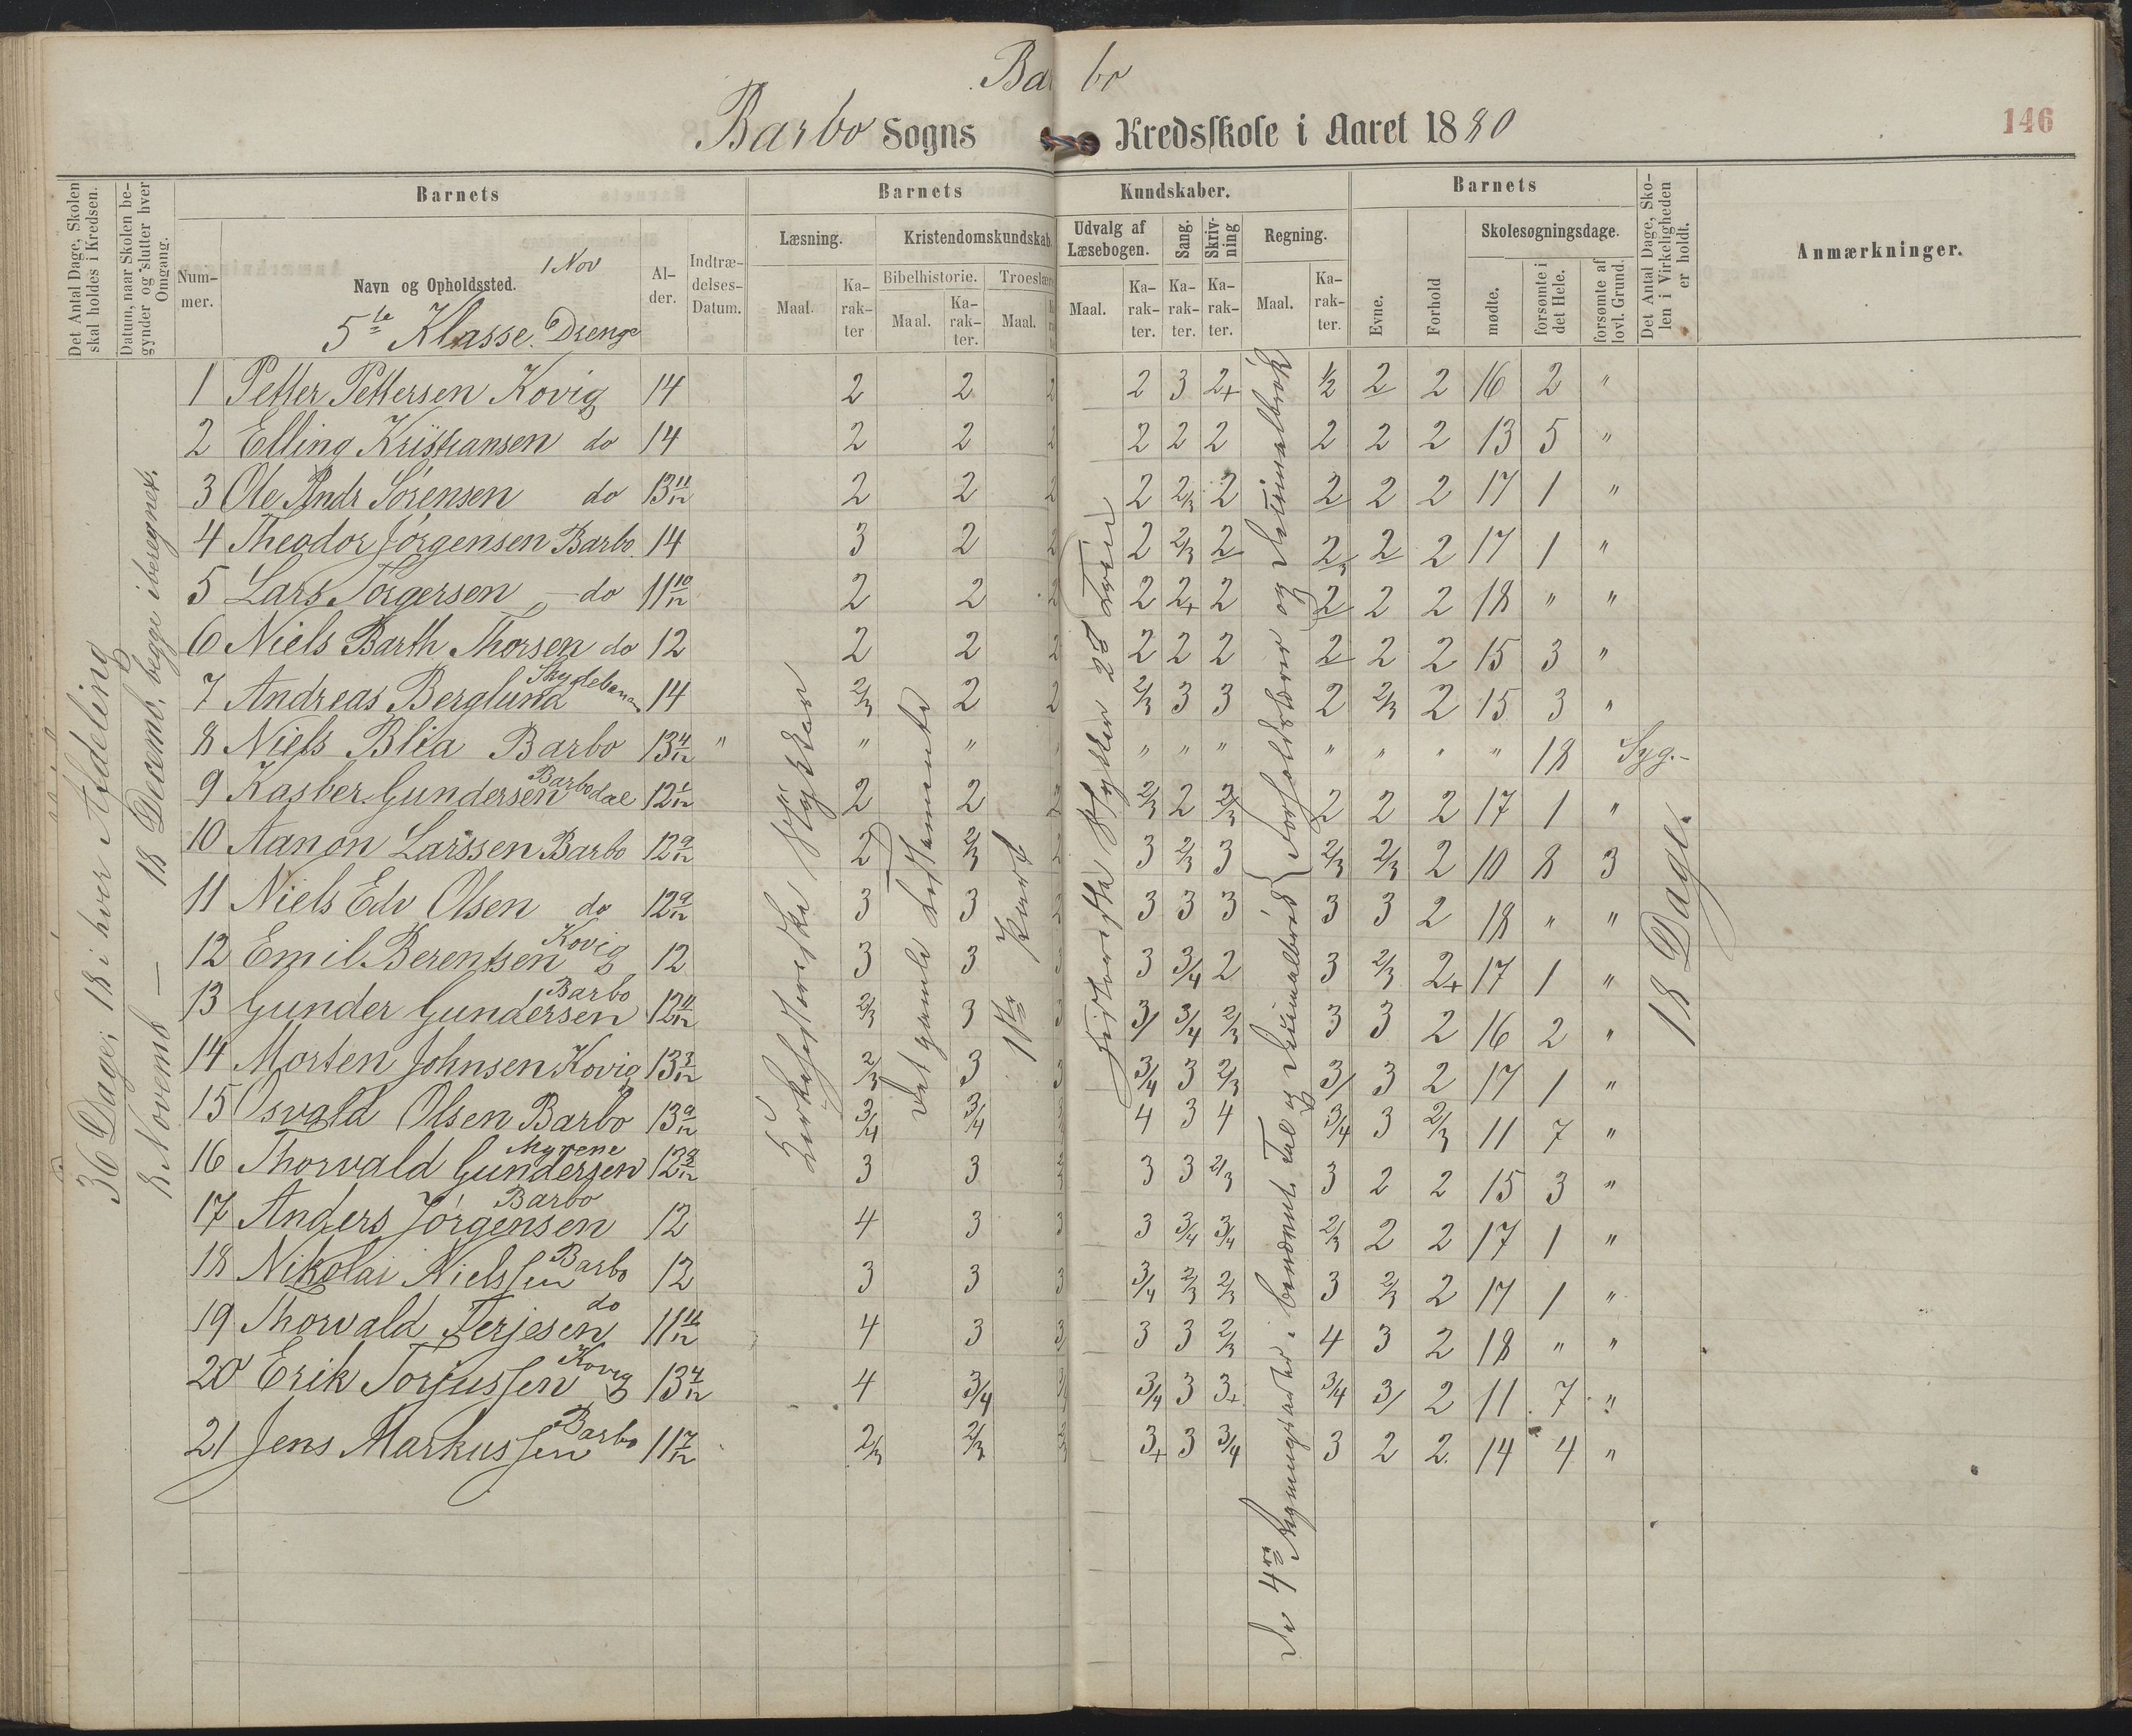 Barbo
Barbo Sogns Kredsskole i Aaret 1880
146
Det Antal Dage, Skolen skal holdes i Kredsen.
Datum, naar Skolen begynder og slutter hver Omgang.
Barnets
Barnets Kundskaber.
Barnets
Det Antal Dage, Skolen i Virkeligheden er holdt.
Anmærkninger.
Nummer.
Navn og Opholdssted. 1 Nov
5te Klasse. Drenge
Alder.
Indtrædelses-Datum.
Læsning.
Maal.
Karakter
Kristendomskundskab.
Bibelhistorie.
Maal.
Karakter.
Troeslære
Maal.
Udvalg af Læsebogen.
Maal.
Karakter.
Sang.
Karakter.
Skrivning
Karakter.
Regning.
Maal.
Karakter.
Evne.
Forhold
Skolesøgningsdage.
mødte.
forsømte i det Hele.
forsømte af lovl. Grund.
36 Dage; 18 i hver Afdeling
8 Novemb — 18 Decemb. begge iberegnet.
Kirkehistoriske Stykker
Det gamle Testamente
1ste Part
Historiske Stykker 2d Trin
De 4re Regningsarter i benævnt Tal og Decimalbrøk } Forholdslære og Decimalbrøk
18 Dage.
1 Petter Pettersen Kovig 14 2 2 2 2 3 2+ 1/2 2 2 16 2 "
2 Elling Kristiansen do 14 2 2 2 2 2 2 2 2 2 13 5 "
3 Ole Andr Sørensen do 13 11/12 2 2 2 2 2/3 2 2 2 2 17 1 "
4 Theodor Jørgensen Barbo. 14 3 2 2 2 2/3 2 2/3 2 2 17 1 "
5 Lars Torgersen do 11 10/12 2 2 2 2 2+ 2 2 2 2 18 " "
6 Niels Barth Thorsen do 12 2 2 2 2 2 2 2 2 2 15 3 "
7 Andreas Berglund 14 2/3 2 2 2/3 3 3 2 2/3 2 15 3 "
8 Niels Blia Barbo 13 4/12 " " " " " " " " " " " 18 Syg.-
9 Kasber Gundersen Barbodal 12 1/12 2 2 2/3 2 2/3 2 2 2 17 1 "
10 Aanon Larssen Barbo 12 9/12 2 2/3 2 3 2/3 3 2/3 2/3 2 10 8 3
11 Niels Edv Olsen do 12 9/12 3 3 3 3 3 3 3 2 18 " "
12 Emil Berentsen Kovig 12 3 3 3 3 3/4 2 3 2/3 2+ 17 1 "
13 Gunder Gundersen Barbo 12 11/12 2/3 3 3 3/ 3/4 2/3 3 3 2 16 2 "
14 Morten Johnsen Kovig 13 3/12 2/3 3 3 3/4 3 2/3 3/ 3 2 17 1 "
15 Osvald Olsen Barbo 13 9/12 3/4 3/4 4 3 4 3/4 3 2/3 11 7 "
16 Thorvald Gundersen Myrene 12 9/12 3 3 3 3 2/3 3 2 2 15 3 "
17 Anders Jørgensen Barbo 12 4 3 3 3 3/4 3/4 2/3 2 2 17 1 "
18 Nikolai Nielssen Barbo 12 3 3 3 3/4 2/3 2/3 3 2/3 2 17 1 "
19 Thorvald Terjesen do 11 11/12 4 3 3 3 3 2/3 4 3 2 18 " "
20 Erik Torjussen Kovig 13 4/12 4 3/4 3/4 3 3+ 3/4 3/ 2 11 7 "
21 Jens Markussen Barbo 11 7/12 2/3 2/3 3+ 3 3/4 3 2 2 14 4 "